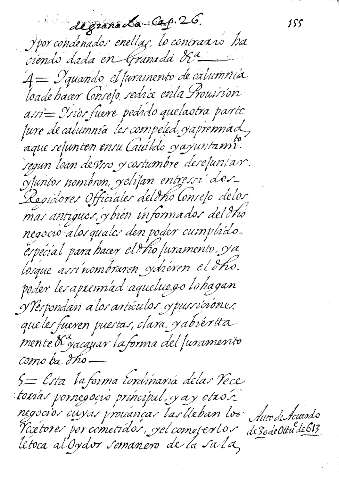 de granada. Cap. 26.
155
y por condenados en ellas, lo contrario ha
ciendo dada en Granada &ª
4 = I quando el juramento de calumnia
loa de hacer Consejo, se dice en la Provision
assi = I si os fuere pedido que la otra parte
jure de calumnia les compeled, y apremiad
a que se junten en su Cauildo y ayuntamiº
segun lo an de uso y costumbre de se juntar,
y juntos nombren, y elijan entre ssi dos
Regidores Officiales del dho Consejo de los
mas antiguos, y bien informados del dho
negocio a los quales den poder cumplido
especial para hacer el dho juramento, y a
los que assi nombraren y dieren el dho
poder les apremiad a que luego lo hagan
y respondan a los articulos y pussiciones,
que les fueren puestas, clara, y abierta
mente &ª y acauar la forma del juramento
como ba dho —
5 = Esta la forma hordinaria de las Rece
torias por negocio principal, y ay otros
negocios cuyas prouanças las lleban los
Recetores por cometidos, y el cometerlos
le toca al Oydor semanero de la sala,
Auto de Acuerdo
de 30 de Otuº de 613